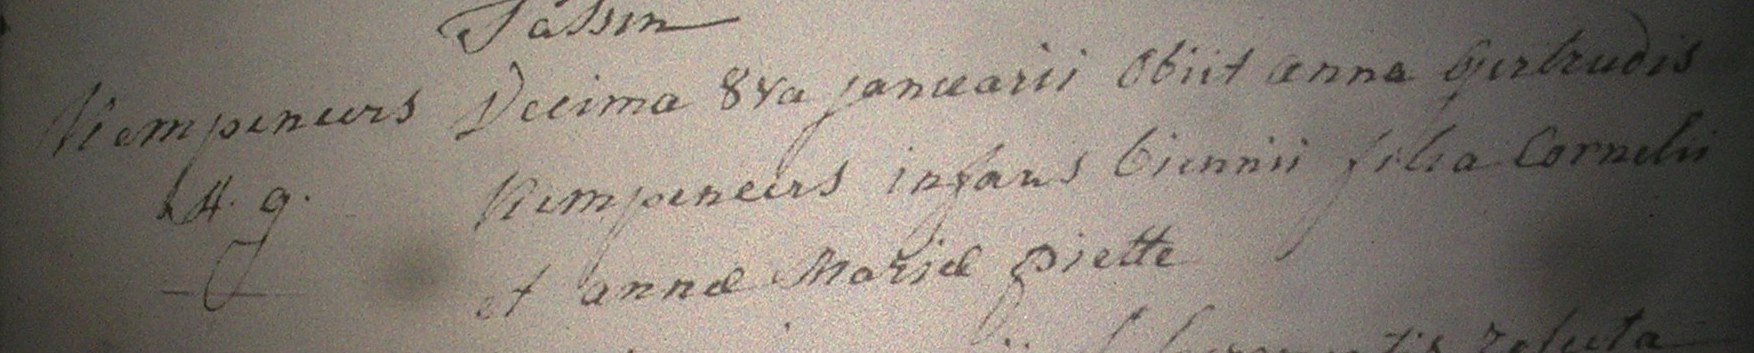 Tassin
Kempeneers Decima 8va januarii Obiit anna Gertrudis
Kempeneers infans biennii filia Cornelii
et annæ Mariæ piette